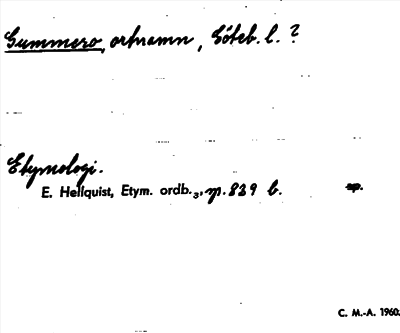 Gummero, ortnamn, Göteb. l. ?
Etymologi.
E. Hellquist, Etym. ordb.₃, p. 839 b. sp.
C. M.-A. 1960.